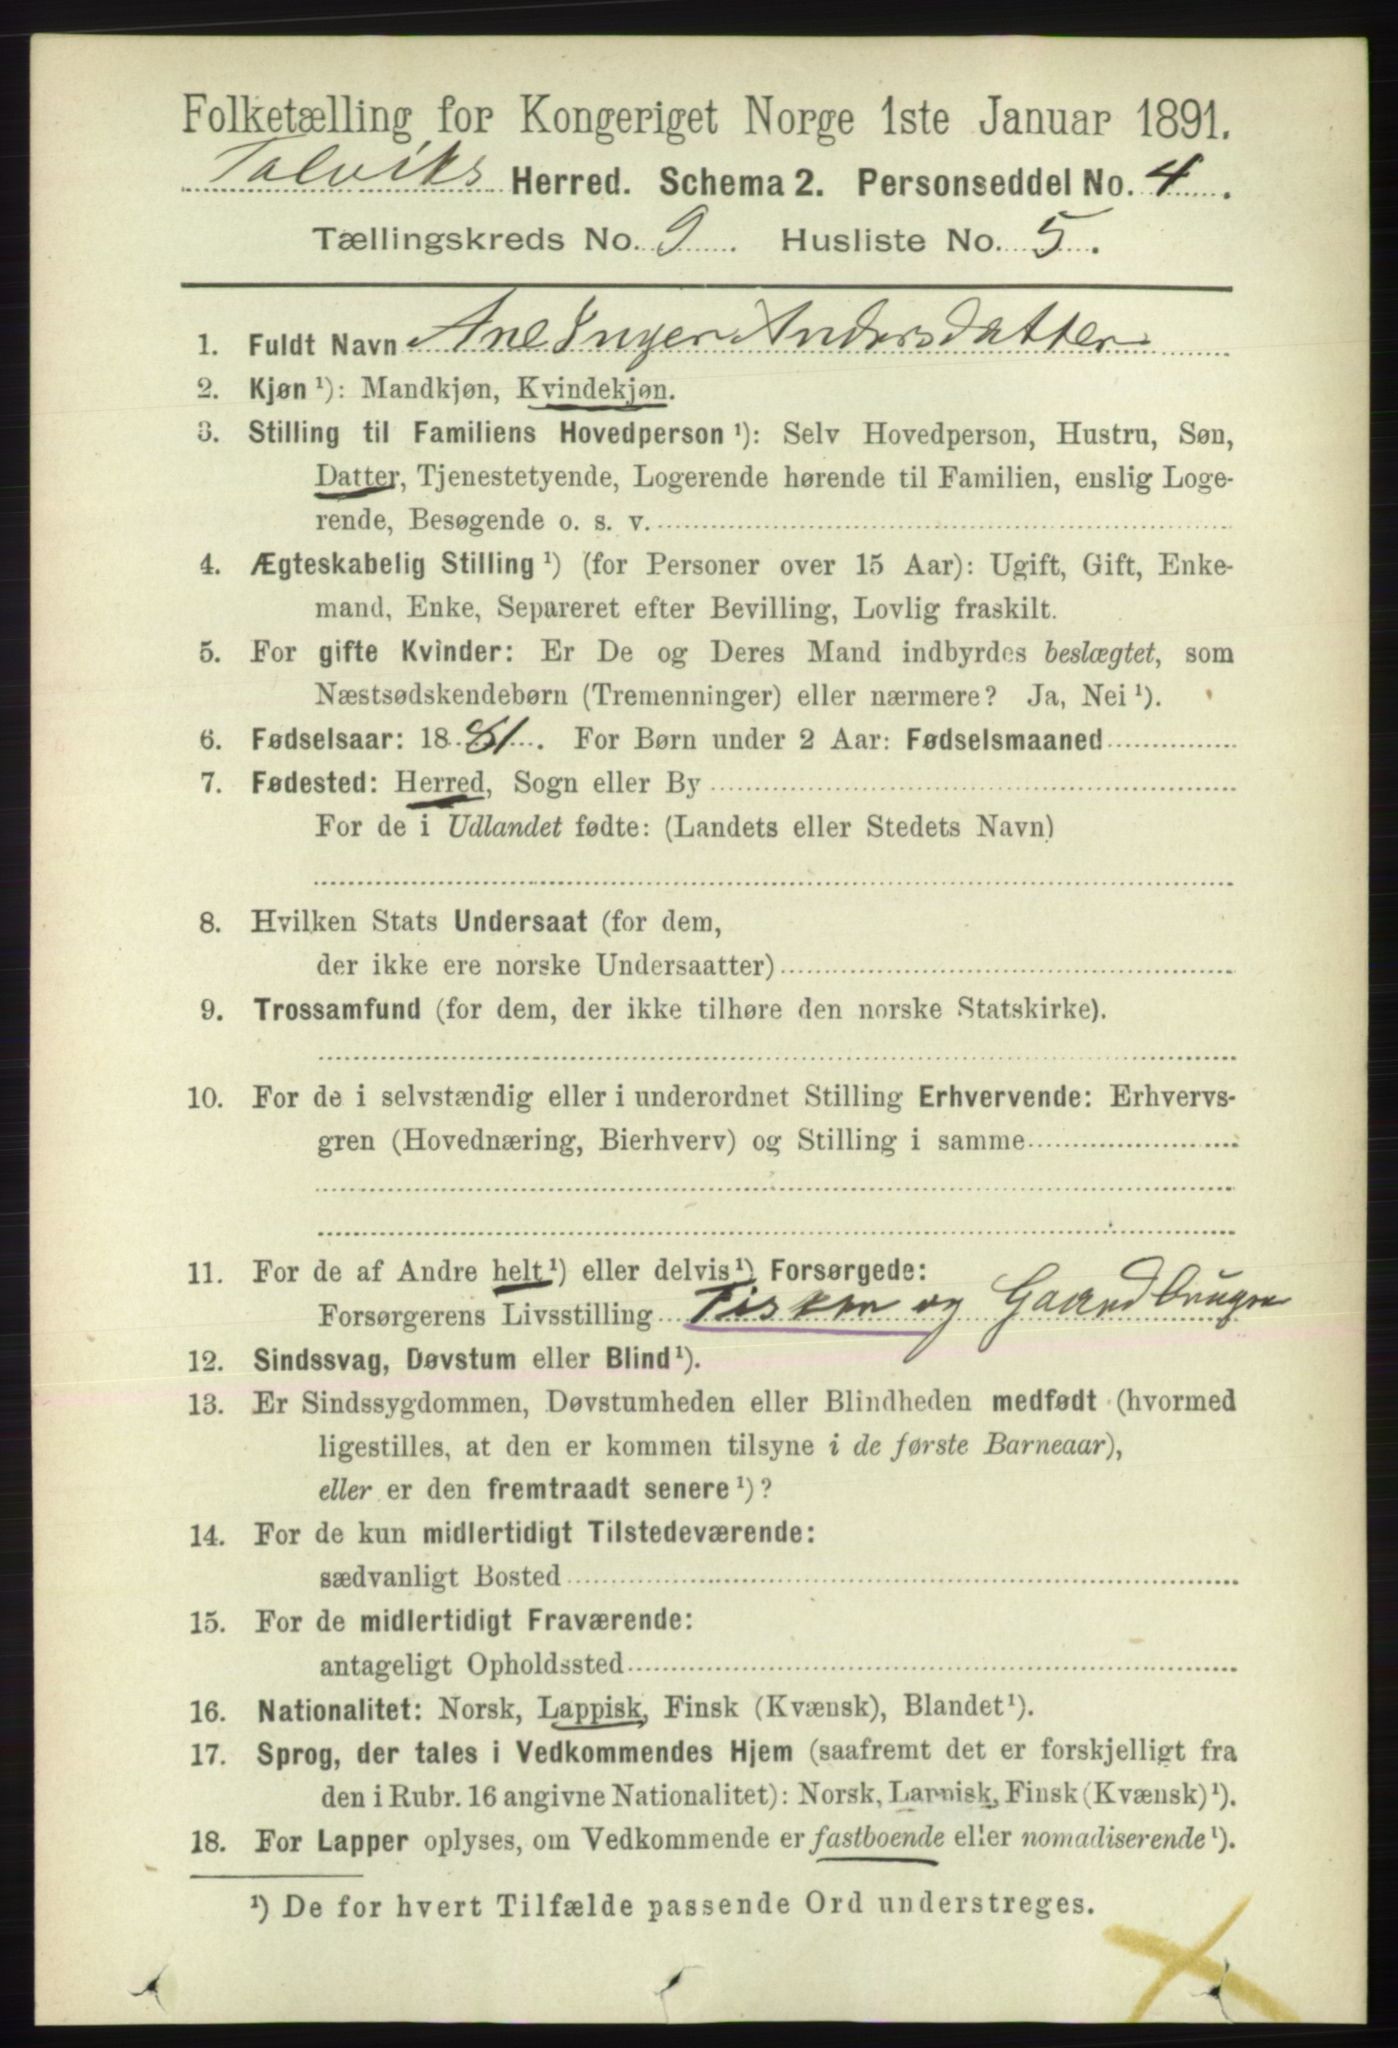 Folketælling for Kongeriget Norge 1ste Januar 1891.
Talviks Herred. Schema 2. Personseddel No. 4.
Tællingskreds No. 9. Husliste No. 5.
1. Fuldt Navn Ane Inger Andersdatter
2. Kjøn ¹): Mandkjøn, Kvindekjøn.
3. Stilling til Familiens Hovedperson ¹): Selv Hovedperson, Hustru, Søn,
Datter, Tjenestetyende, Logerende hørende til Familien, enslig Loge-
rende, Besøgende o. s. v.
4. Ægteskabelig Stilling ¹) (for Personer over 15 Aar): Ugift, Gift, Enke-
mand, Enke, Separeret efter Bevilling, Lovlig fraskilt.
5. For gifte Kvinder: Er De og Deres Mand indbyrdes beslægtet, som
Næstsødskendebørn (Tremenninger) eller nærmere? Ja, Nei ¹).
6. Fødselsaar: 1881. For Børn under 2 Aar: Fødselsmaaned
7. Fødested: Herred, Sogn eller By
For de i Udlandet fødte: (Landets eller Stedets Navn)
8. Hvilken Stats Undersaat (for dem,
der ikke ere norske Undersaatter)
9. Trossamfund (for dem, der ikke tilhøre den norske Statskirke).
10. For de i selvstændig eller i underordnet Stilling Erhvervende: Erhvervs-
gren (Hovednæring, Bierhverv) og Stilling i samme
11. For de af Andre helt ¹) eller delvis ¹) Forsørgede:
Forsørgerens Livsstilling Fisker og Gaardbruger
12. Sindssvag, Døvstum eller Blind ¹).
13. Er Sindssygdommen, Døvstumheden eller Blindheden medfødt (hvormed
ligestilles, at den er kommen tilsyne i de første Barneaar),
eller er den fremtraadt senere ¹)?
14. For de kun midlertidigt Tilstedeværende:
sædvanligt Bosted
15. For de midlertidigt Fraværende:
antageligt Opholdssted
16. Nationalitet: Norsk, Lappisk, Finsk (Kvænsk), Blandet ¹).
17. Sprog, der tales i Vedkommendes Hjem (saafremt det er forskjelligt fra
den i Rubr. 16 angivne Nationalitet): Norsk, Lappisk, Finsk (Kvænsk) ¹).
18. For Lapper oplyses, om Vedkommende er fastboende eller nomadiserende ¹).
¹) De for hvert Tilfælde passende Ord understreges.